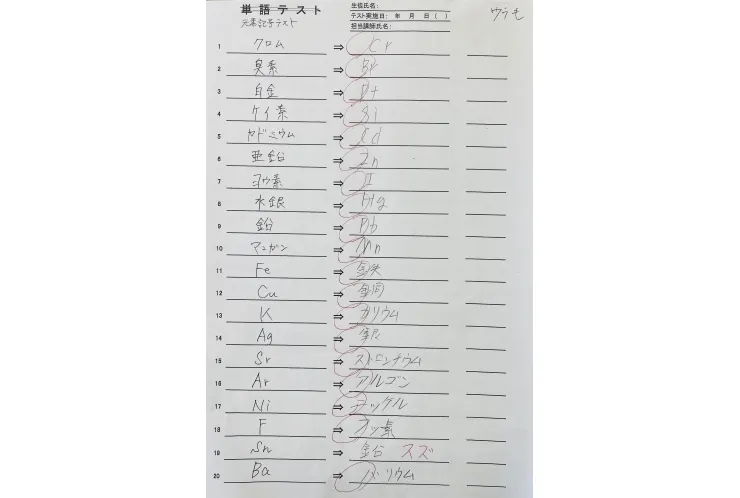 単語テスト
元素記号テスト
生徒氏名:
テスト実施日: 年 月 日 ( )
担当講師氏名:
ウラも
1 クロム ⇒ Cr
2 臭素 ⇒ Br
3 白金 ⇒ Pt
4 ケイ素 ⇒ Si
5 カドニウム ⇒ Cd
6 亜鉛 ⇒ Zn
7 ヨウ素 ⇒ I
8 水銀 ⇒ Hg
9 鉛 ⇒ Pb
10 マンガン ⇒ Mn
11 Fe ⇒ 鉄
12 Cu ⇒ 銅
13 K ⇒ カリウム
14 Ag ⇒ 銀
15 Sr ⇒ ストロンチウム
16 Ar ⇒ アルゴン
17 Ni ⇒ ニッケル
18 F ⇒ フッ素
19 Sn ⇒ 鉛 スズ
20 Ba ⇒ バリウム